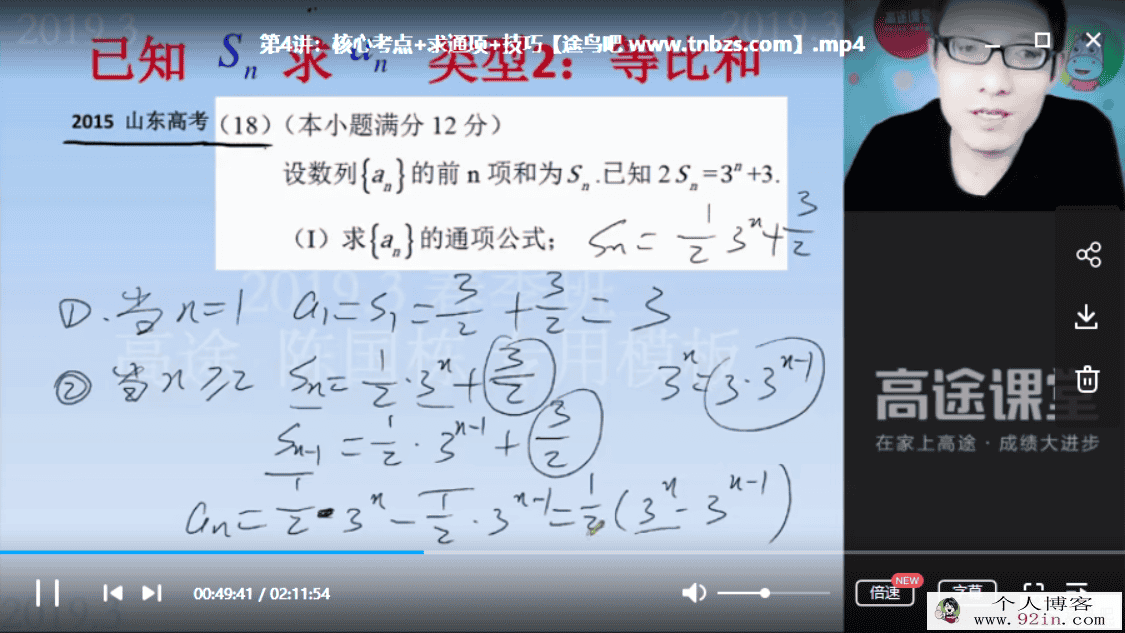 2019.3
2019.3
第4讲：核心考点+求通项+技巧【途鸟吧 www.tnbzs.com】.mp4
已知 Sn 求 an 类型2：等比和
2015 山东高考 (18)（本小题满分 12 分）
设数列{an}的前 n 项和为 Sn.已知 2Sn=3^n+3.
（I）求{an}的通项公式； Sn = 1/2 3^n + 3/2
2019.3 春季班
①.当 n=1 a1=S1=3/2+3/2=3
高途 陈国栋专用模板
② 当 n≥2 Sn=1/2·3^n+3/2 3^n=3·3^(n-1)
Sn-1=1/2·3^(n-1)+3/2
an=1/2·3^n-1/2·3^(n-1)=1/2(3^n-3^(n-1))
高途课堂
在家上高途·成绩大进步
00:49:41 / 02:11:54
倍速 NEW 字幕
2019.3
个人博客
www.92in.com